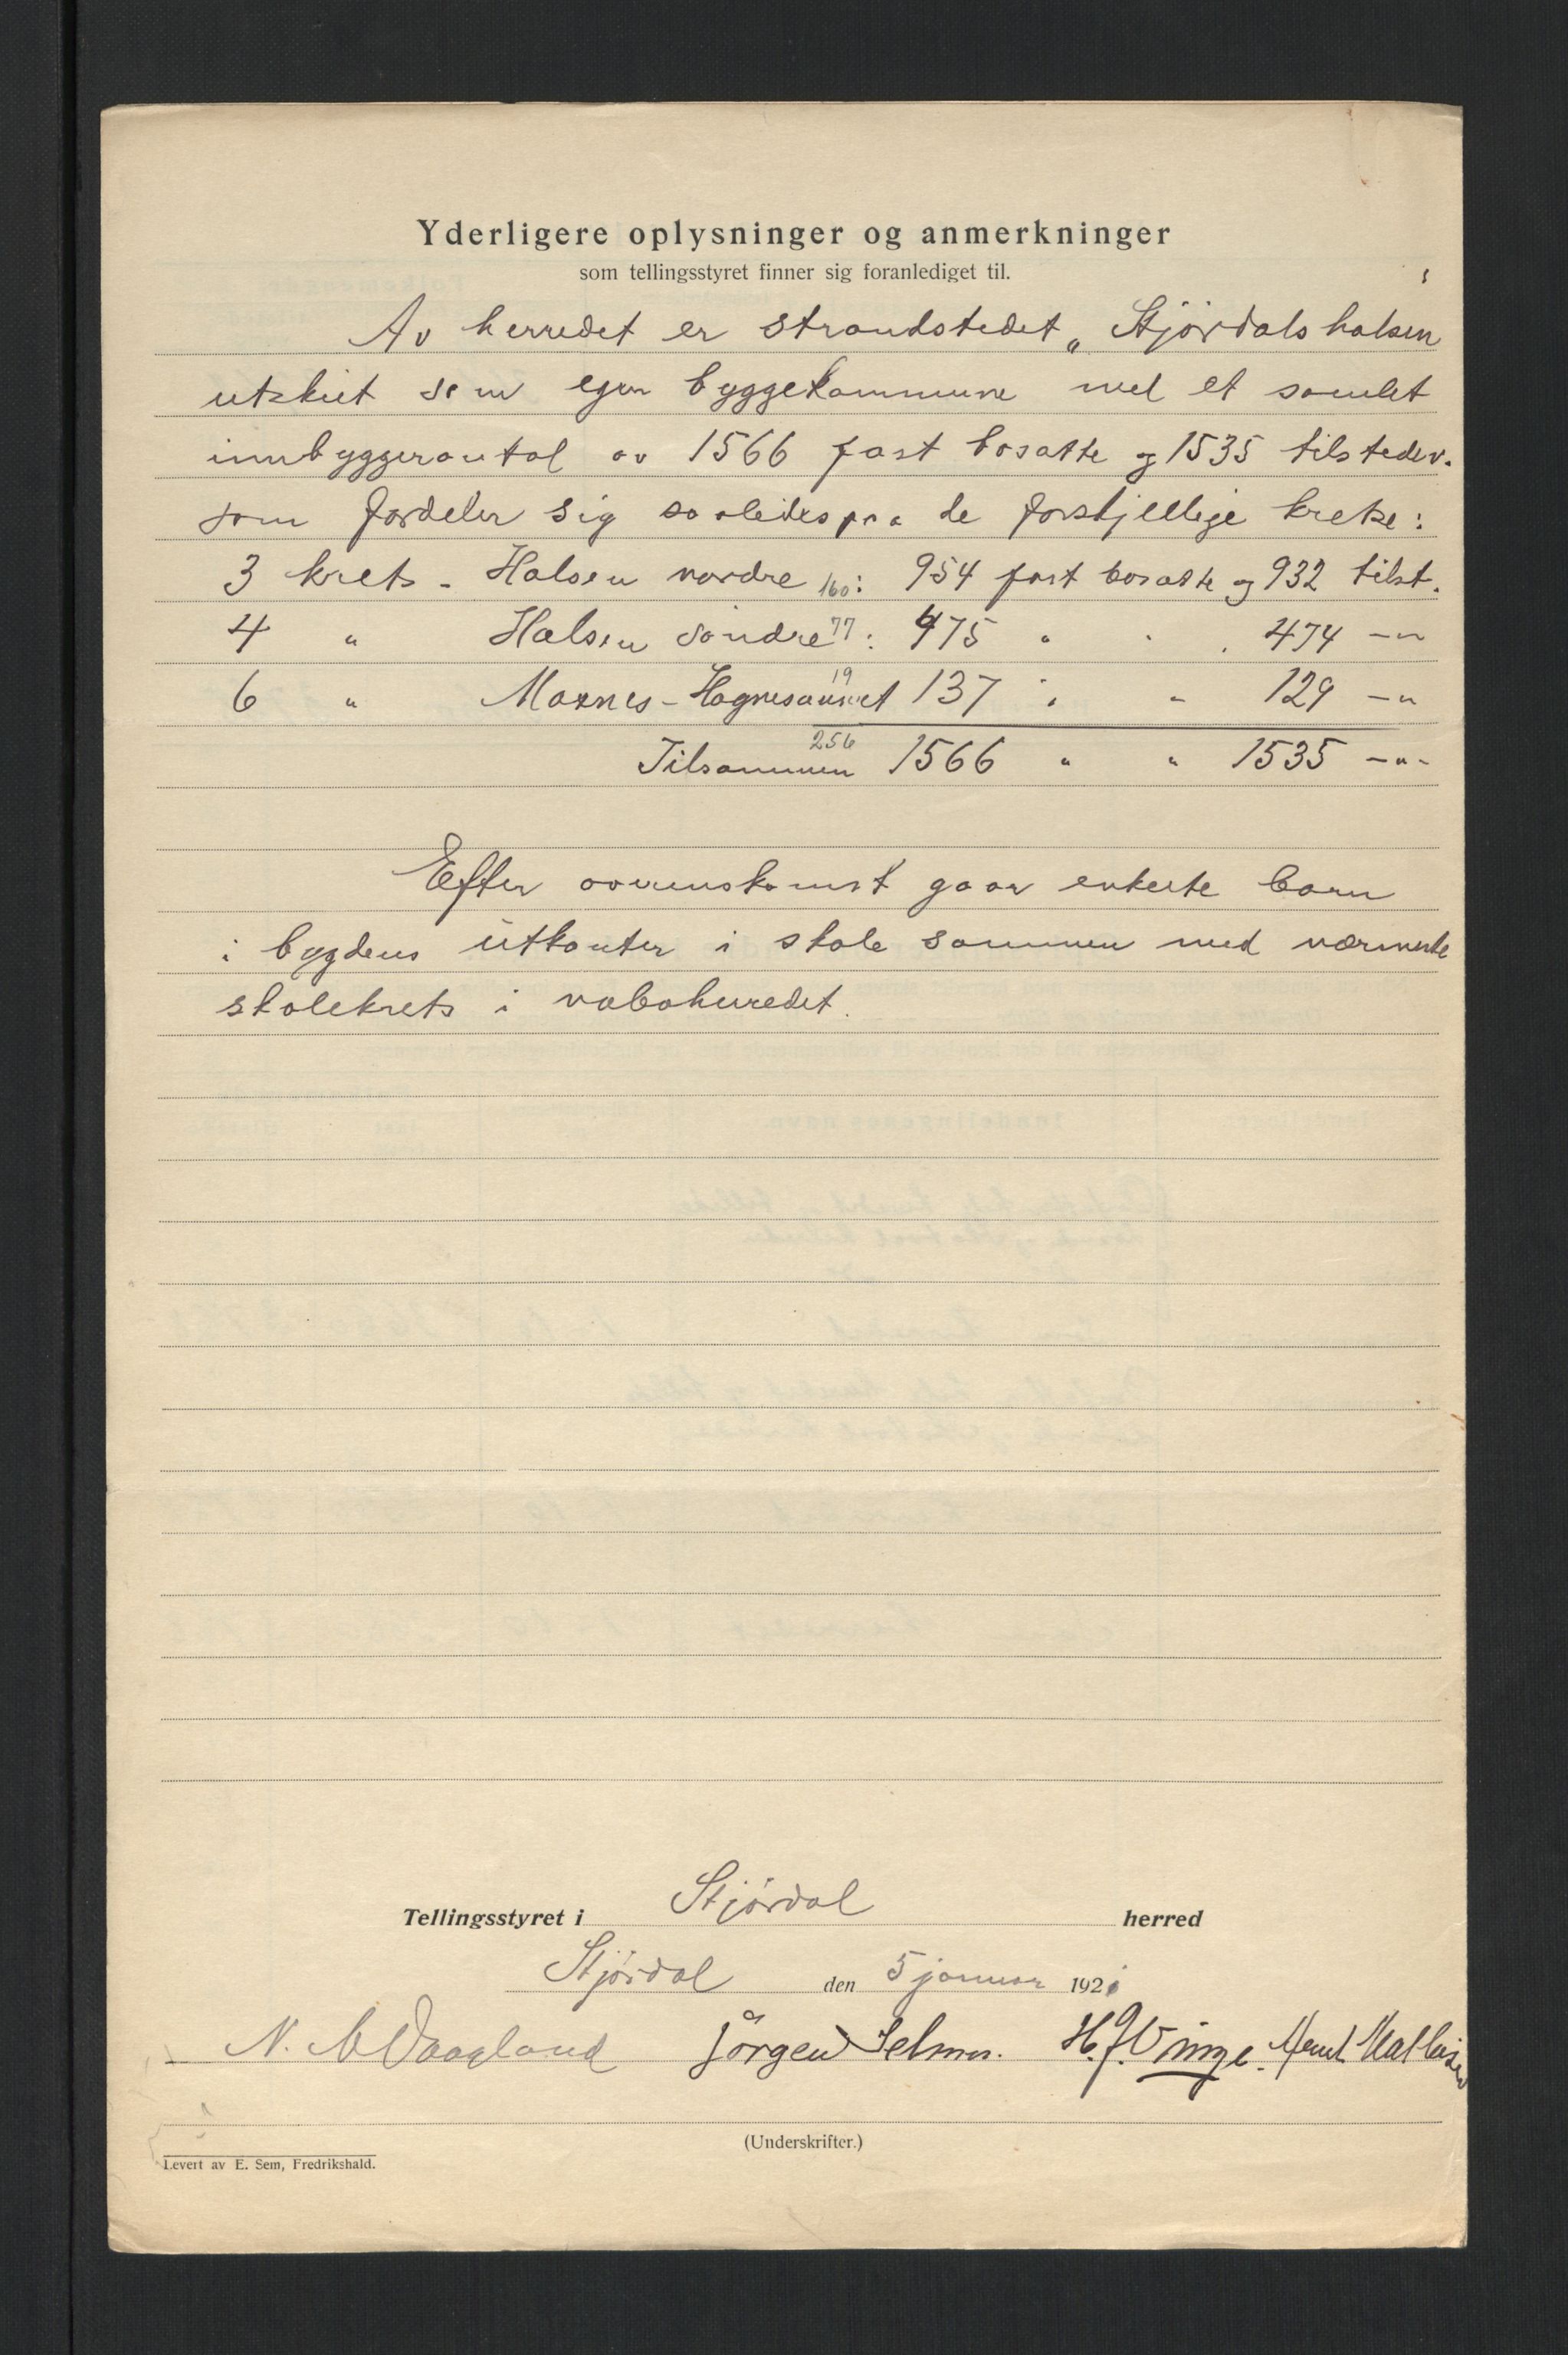 Yderligere oplysninger og anmerkninger
som tellingsstyret finner sig foranlediget til.
Av herredet er strandstedet „Stjørdalshalsen
utskilt som egen byggekommune med et samlet
innbyggerantal av 1566 fast bosatte og 1535 tilstedev.
som fordeler sig saaledes paa de forskjellige kretse:
3 krets - Halsen nordre 160: 954 fast bosatte og 932 tilst.
4 " Halsen søndre 77: 475 " " 474 -"-
6 " Moxnes-Hognesaunet 19 137 " " 129 -"-
Tilsammen 256 1566 " " 1535 -"-
Efter overenskomst gaar enkelte barn
i bygdens utkanter i skole sammen med nærmeste
skolekrets i naboherredet.
Tellingsstyret i Stjørdal herred
Stjørdal den 5 januar 1921
N. Vaagland Jørgen Selmer. H. J. Vinge. Mathisen
(Underskrifter.)
Levert av E. Sem, Fredrikshald.